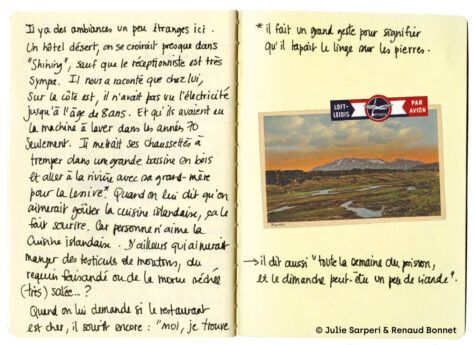 Il y a des ambiances un peu étranges ici.
Un hôtel désert, on se croirait presque dans
"Shining", sauf que le réceptionniste est très
sympa. Il nous a raconté que chez lui,
sur la côte est, il n'avait pas vu l'électricité
jusqu'à l'âge de 8 ans. Et qu'ils avaient eu
la machine à laver dans les années 70
seulement. Il mettait ses chaussettes à
tremper dans une grande bassine en bois
et aller à la rivière avec sa grand-mère
pour la lessive*. Quand on lui dit qu'on
aimerait goûter la cuisine islandaise, ça le
fait sourire. Car personne n'aime la
cuisine islandaise. D'ailleurs qui aimerait
manger des testicules de moutons, du
requin faisandé ou de la morue séchée
(très) salée...?
Quand on lui demande si le restaurant
est cher, il sourit encore : "moi, je trouve
* il fait un grand geste pour signifier
qu'il tapait le linge sur les pierres.
LOFT-
LEIDIS
PAR
AVION
→ il dit aussi "toute la semaine du poisson,
et le dimanche peut-être un peu de viande".
© Julie Sarperi & Renaud Bonnet